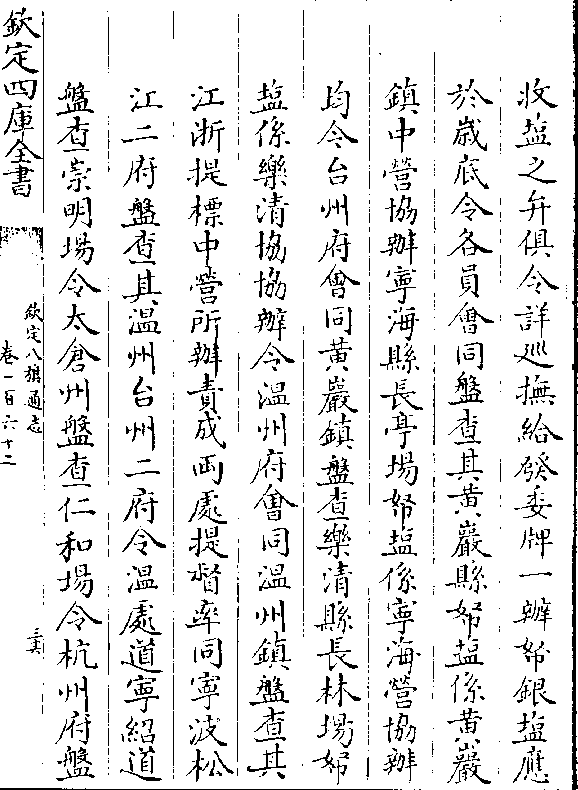 收盐之弁俱令詳巡撫給發委牌一辦帑銀盐應
於嵗底令各員㑹同盤查其黄巖縣帑盐係黄巖
鎮中營協辦寧海縣長亭場帑盐係寧海營協辦
均令台州府㑹同黄巖鎮盤查樂清縣長林場帑
盐係樂清協協辦令温州府㑹同温州鎮盤查其
江浙提標中營所辦責成両處提督率同寧波松
江二府盤查其温州台州二府令温處道寧紹道
盤查崇明場令太倉州盤查仁和場令杭州府盤
欽定四庫全書
欽定八旗通志
卷一百六十二
三六